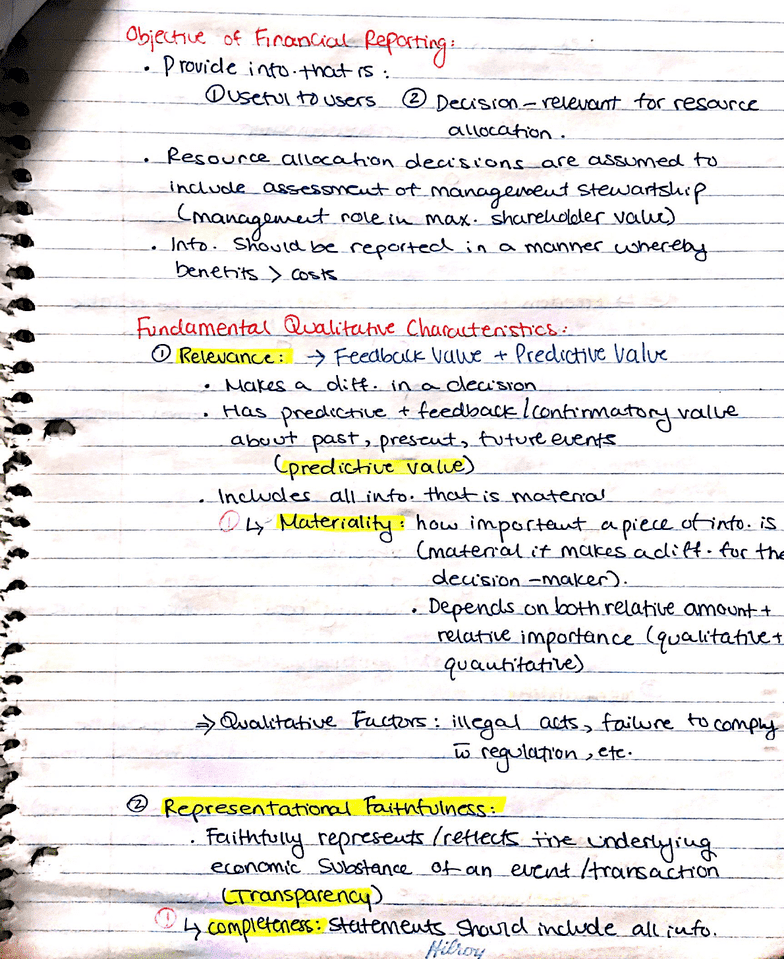 Objective of Financial Reporting:
• Provide info. that is:
① Useful to users ② Decision-relevant for resource
allocation.
• Resource allocation decisions are assumed to
include assessment of management stewartship
(management role in max. shareholder value)
• Info. Should be reported in a manner whereby
benefits > costs
Fundamental Qualitative Charateristics:
① Relevance: → Feedback Value + Predictive Value
• Makes a diff. in a decision
• Has predictive + feedback/confirmatory value
about past, present, future events
(predictive value)
• Includes all info. that is material
① ↳ Materiality: how important a piece of info. is
(material it makes a diff. for the
decision-maker).
• Depends on both relative amount +
relative importance (qualitative +
quantitative)
⇒ Qualitative Factors: illegal acts, failure to comply
w regulation, etc.
② Representational Faithfulness:
• Faithfully represents/reflects the underlying
economic Substance of an event/transaction
(Transparency)
① ↳ completeness: Statements Should include all info.
Hilroy